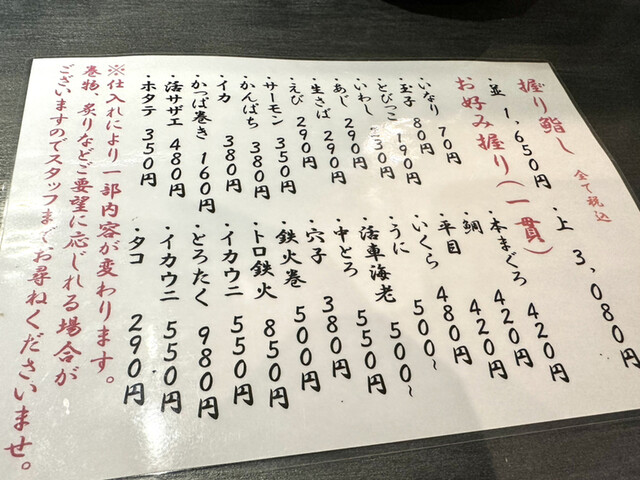 握り鮨し 全て税込
・並 1,650円 ・上 3,080円
お好み握り(一貫)
・いなり 70円
・玉子 80円
・とびっこ 190円
・いわし 230円
・あじ 290円
・生さば 290円
・えび 290円
・サーモン 350円
・かんぱち 380円
・イカ 380円
・かっぱ巻き 160円
・活サザエ 480円
・ホタテ 350円
・本まぐろ 420円
・鯛 420円
・平目 420円
・いくら 480円
・うに 500〜
・活車海老 500〜
・中とろ 550円
・穴子 380円
・鉄火巻 500円
・トロ鉄火 850円
・イカウニ 550円
・とろたく 980円
・イカウニ 550円
・タコ 290円
※仕入れにより一部内容が変わります。
巻物、炙りなどご要望に応じれる場合が
ございますのでスタッフまでお尋ねくださいませ。